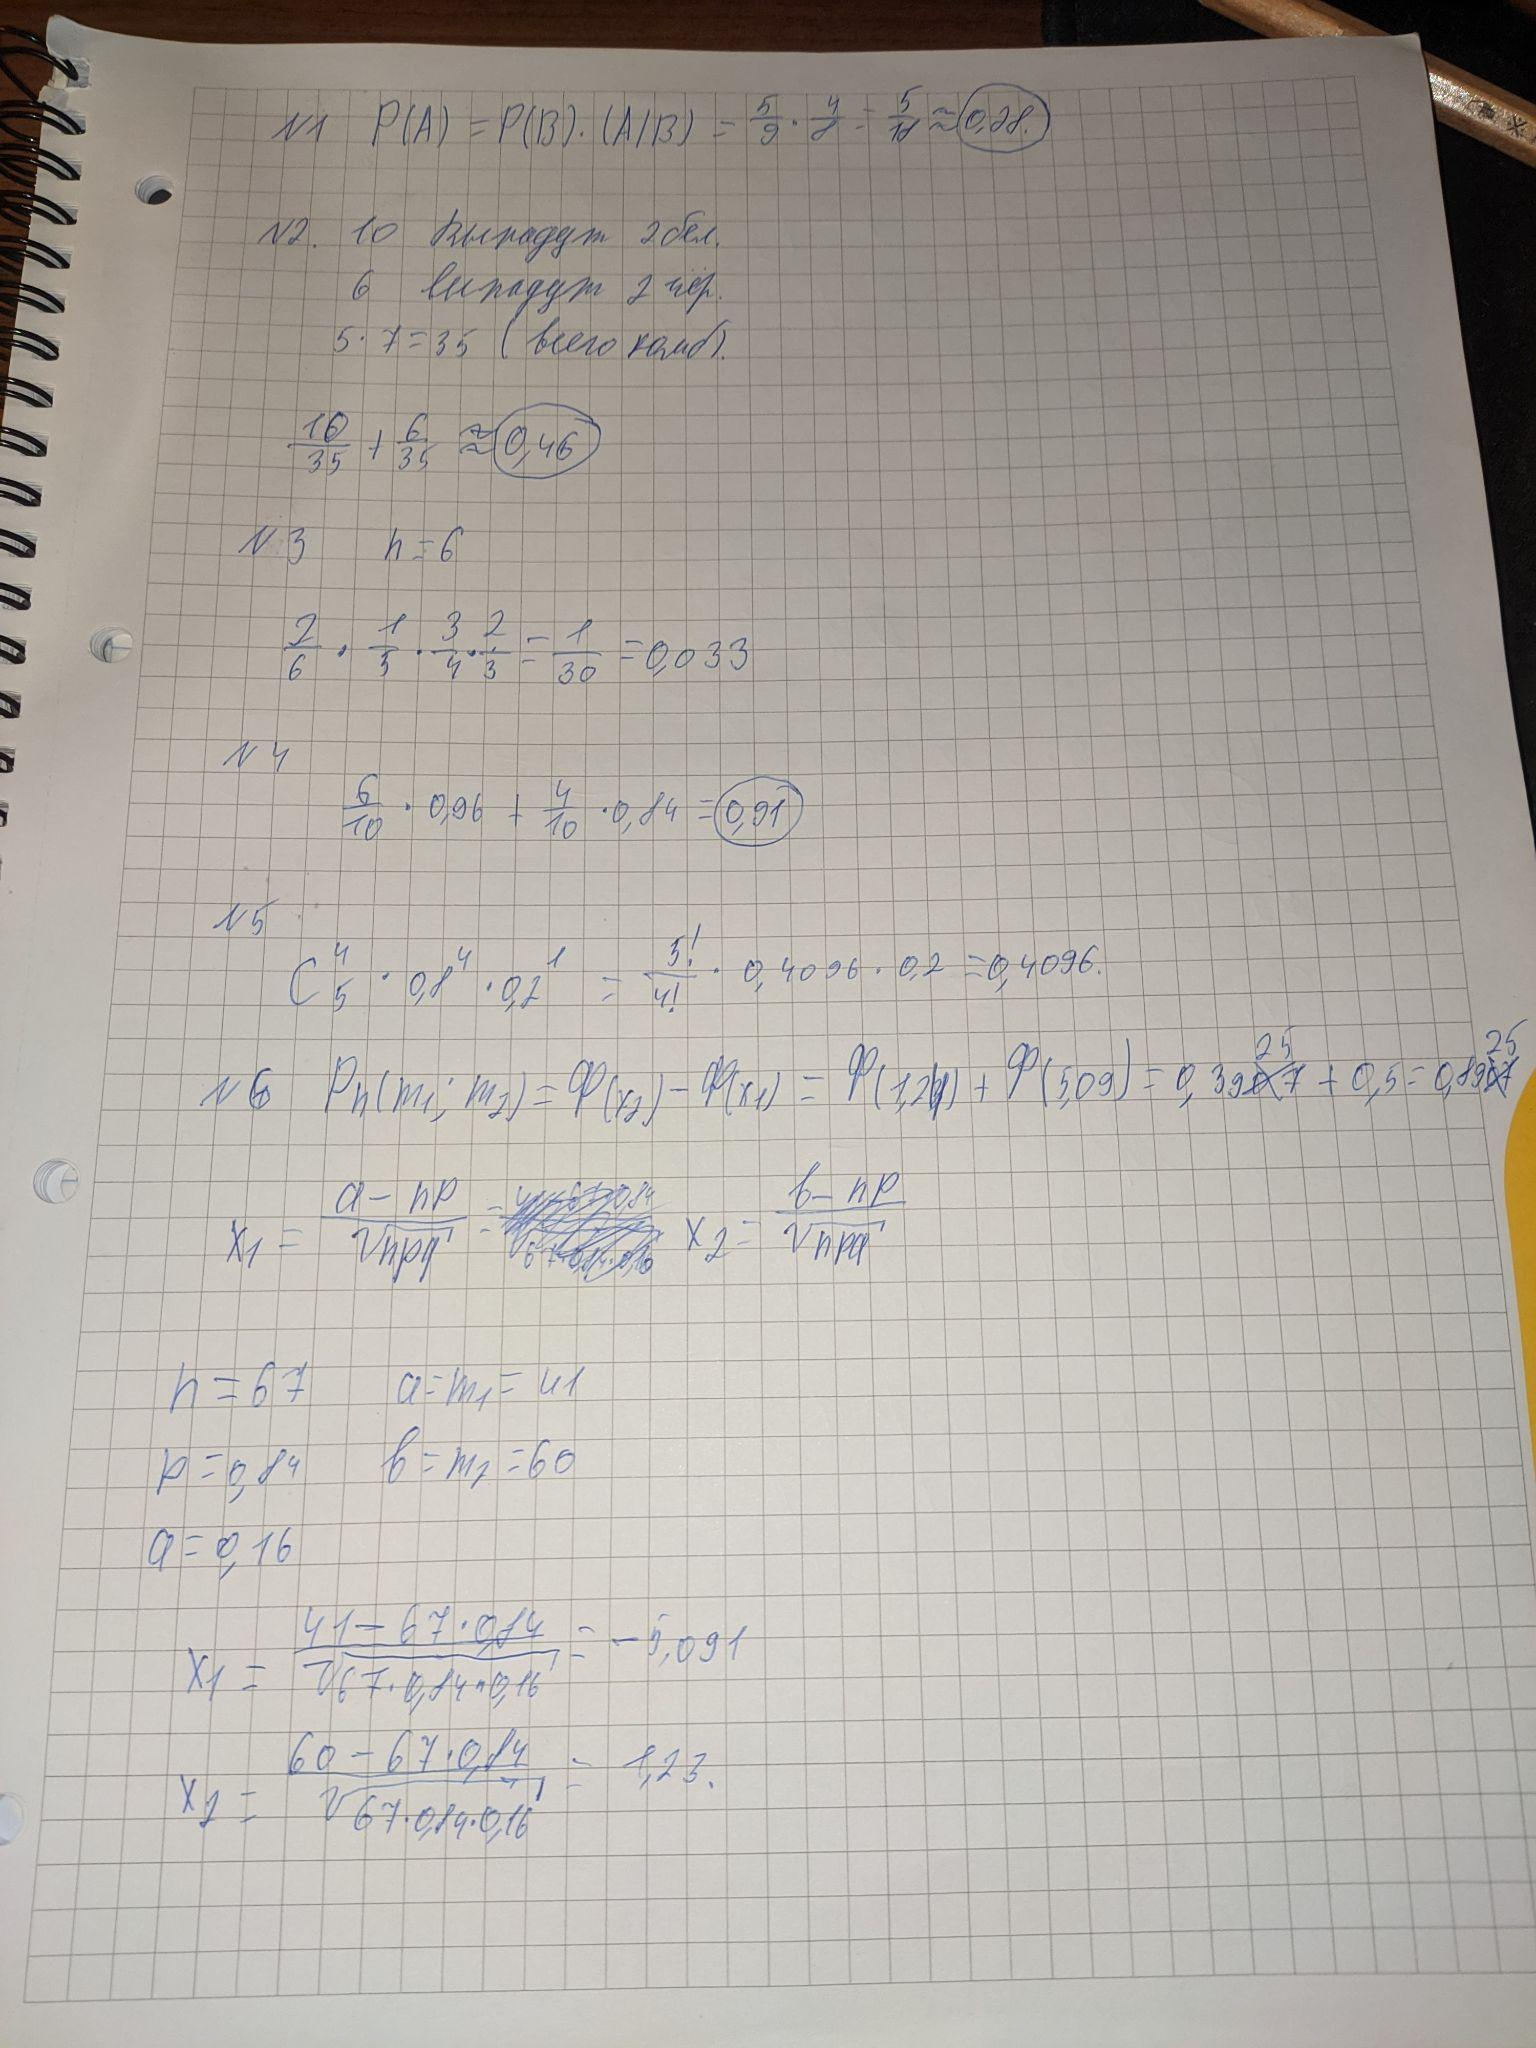 N1 P(A) = P(B)·(A/B) = 5/9 · 4/8 = 5/18 ≈ 0,28.
N2. 10 выпадут 2 бел.
6 выпадут 2 чёр.
5·7=35 (всего комб).
10/35 + 6/35 ≈ 0,46
N3 n=6
2/6 · 1/5 · 3/4 · 2/3 = 1/30 = 0,033
N4
6/10 · 0,96 + 4/10 · 0,84 = 0,91
N5
C₅⁴ · 0,8⁴ · 0,2¹ = 5!/4! · 0,4096 · 0,2 = 0,4096.
N6 Pn(m₁; m₂) = Ф(x₂) − Ф(x₁) = Ф(1,24) + Ф(5,09) = 0,3925 + 0,5 = 0,8925
x₁ = a − np / √npq = x₂ = b − np / √npq
n = 67 a = m₁ = 41
p = 0,84 b = m₂ = 60
q = 0,16
x₁ = 41 − 67·0,84 / √67·0,84·0,16 = −5,091
x₂ = 60 − 67·0,84 / √67·0,84·0,16 = 1,23.